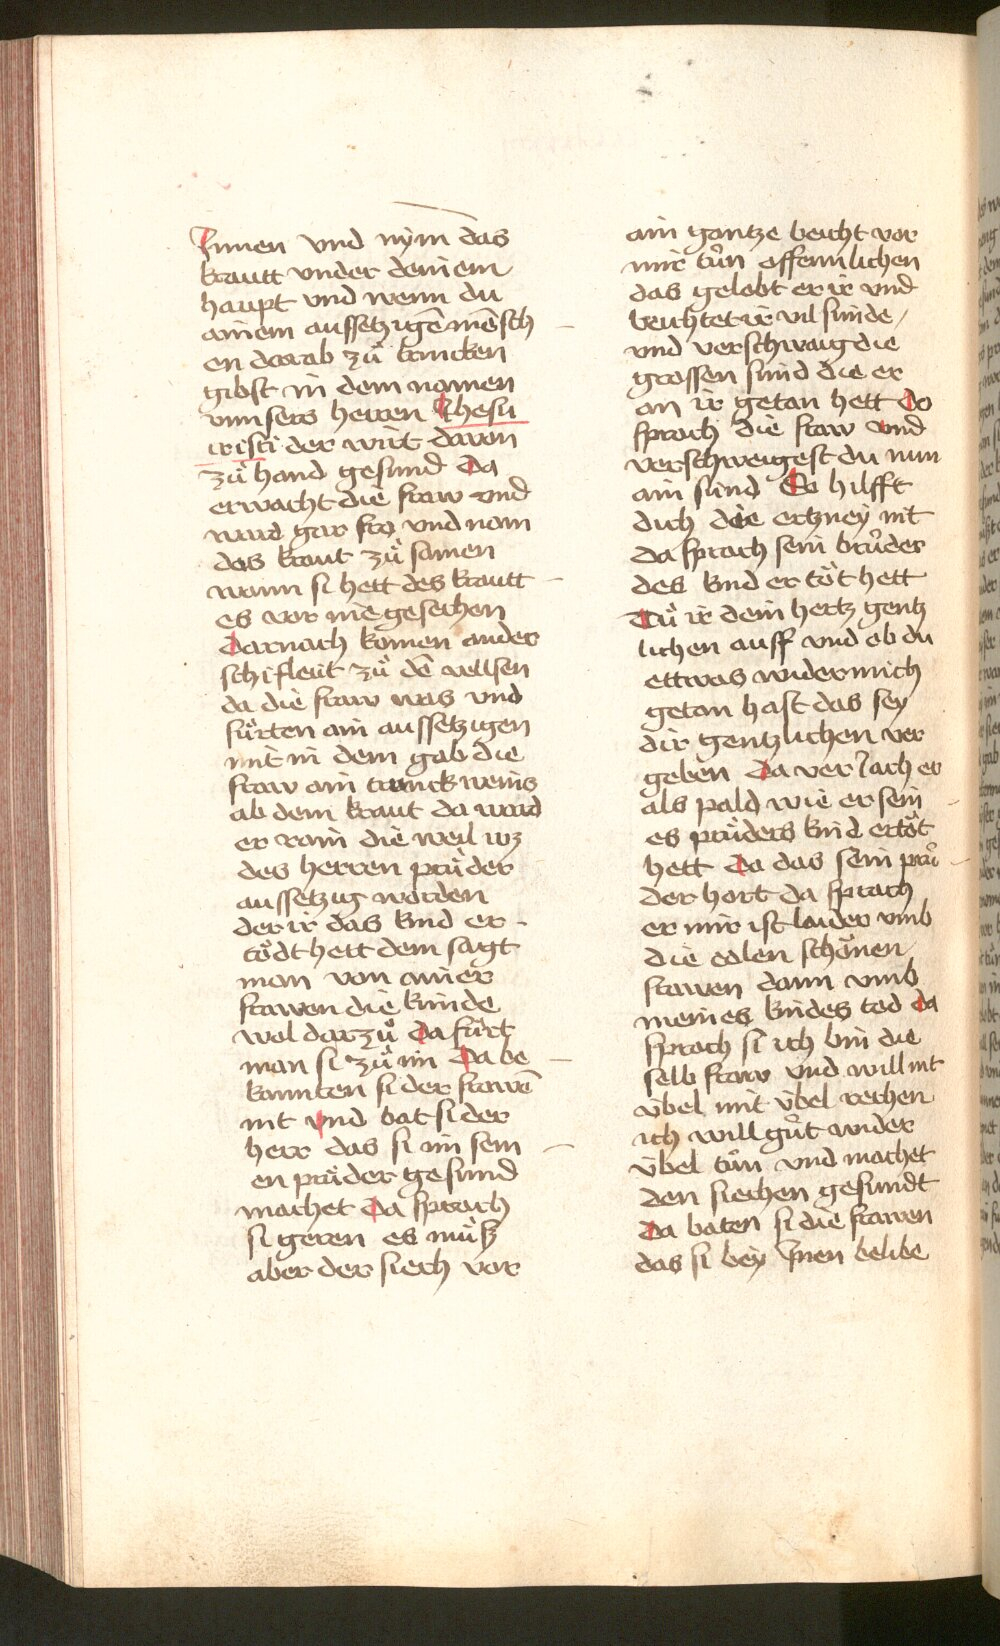 Innen vnd nÿm das
krautt vnder deinem
haupt vnd wenn du
ainem aussetzigē mēsch
en darab zů trincken
gibst in dem namen
vnnsers herren Jhesu
cristi der wirt davon
zů hand gesund Da
erwacht die fraw vnd
ward gar fro vnd nam
das kraut zů samen
wann si hett des krautt
es vor nie gesechen
Darnach komen ander
schifleüt zů dē vellsen
da die fraw was vnd
fůrten ain aussetzigen
mit in dem gab die
fraw ain trunck weins
ab dem kraut da ward
er rain die weil wz
des herren průder
aussetzig worden
der ir das kind er
tödt hett dem sagt
man von ainer
frawen die kunde
wol darzů Da fůrt
man si zů im Da be
kannten si der frawē
nit vnd bat si der
herr das si im sein
en průder gesund
machet Da sprach
si geren es můß
aber der siech vor
ain gantze beicht vor
mir tůn offennlichen
das gelobt er ir vnd
beichtet ir vil sünde
vnd verschwaig die
grossen sünd die er
an ir getan hett Do
sprach die fraw vnd
verschweigest du nun
ain sünd So hilfft
dich die ertzney nit
da sprach sein brůder
des kind er töt hett
Tů ir dein hertz gentz
lichen auff vnd ob du
ettwas wider mich
getan hast das sey
dir gentzlichen ver
geben Da veriach er
als pald wie er sein
es průders kind ertöt
hett Da das sein prů
der hort da sprach
er mir ist laider vmb
die edlen schönen
frawen dann vmb
meines kindes tod Da
sprach si ich bin die
selb fraw vnd will nit
übel mit übel rechen
ich will gůt wider
übel tůn vnd machet
den siechen gesundt
Da baten si die frawen
das si beÿ Innen belibe